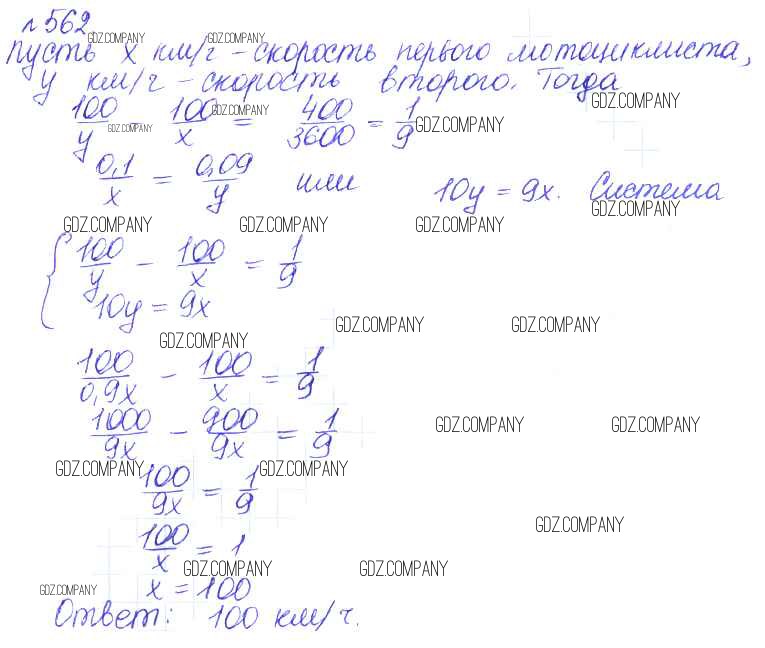 №562
GDZ.COMPANY GDZ.COMPANY
Пусть x км/г - скорость первого мотоциклиста,
y км/г - скорость второго. Тогда
GDZ.COMPANY GDZ.COMPANY
100/y - 100/x = 400/3600 = 1/9
GDZ.COMPANY GDZ.COMPANY
0,1/x = 0,09/y или 10y = 9x. Система
GDZ.COMPANY
GDZ.COMPANY GDZ.COMPANY GDZ.COMPANY
{ 100/y - 100/x = 1/9
10y = 9x
GDZ.COMPANY GDZ.COMPANY
GDZ.COMPANY
100/0,9x - 100/x = 1/9
1000/9x - 900/9x = 1/9
GDZ.COMPANY GDZ.COMPANY
GDZ.COMPANY GDZ.COMPANY
100/9x = 1/9
GDZ.COMPANY
100/x = 1
GDZ.COMPANY GDZ.COMPANY
x = 100
GDZ.COMPANY
Ответ: 100 км/ч.